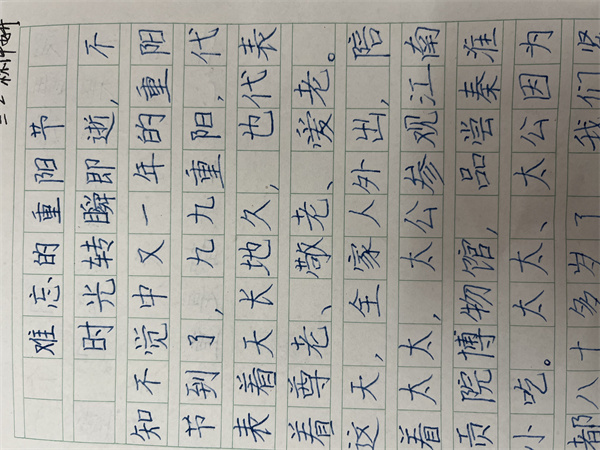 难忘的重阳节
时光转瞬即逝，不
知不觉中又一年的重阳
节到了，九九重阳，代
表着天长地久，也代表
着尊老、敬老、爱老。
这天，全家人外出，陪
着太太，太公参观江南
贡院博物馆，品尝秦淮
小吃。太太、太公因为
都八十多岁了 我们